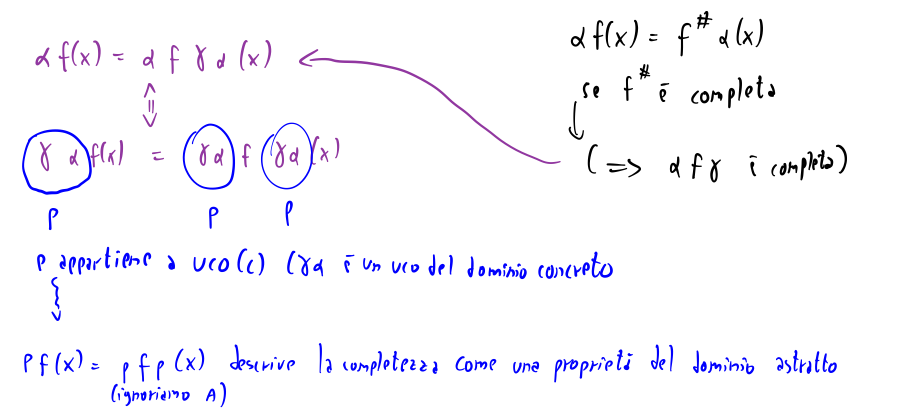 α f(x) = α f γ α (x)
γ α f(x) = γα f γα (x)
ρ ρ ρ
α f(x) = f# α(x)
se f# è completa
(=> α f γ è completa)
ρ appartiene a uco(C) (γα è un uco del dominio concreto
ρ f(x) = ρ f ρ (x) descrive la completezza come una proprietà del dominio astratto
(ignoriamo A)